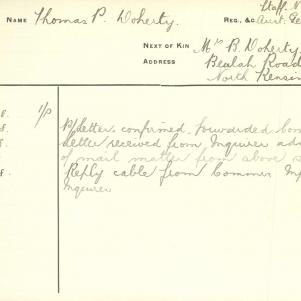 Staff. N
NAME Thomas P. Doherty. REG., &c Aust. Ge
NEXT OF KIN Mrs B. Doherty
ADDRESS Beulah Road
North Kensin
8. 1/P
8. P/letter confirmed. Forwarded Com
letter received from Inquirer adv
of mail matter from above
8. Reply cable from Commrs
Inquirer